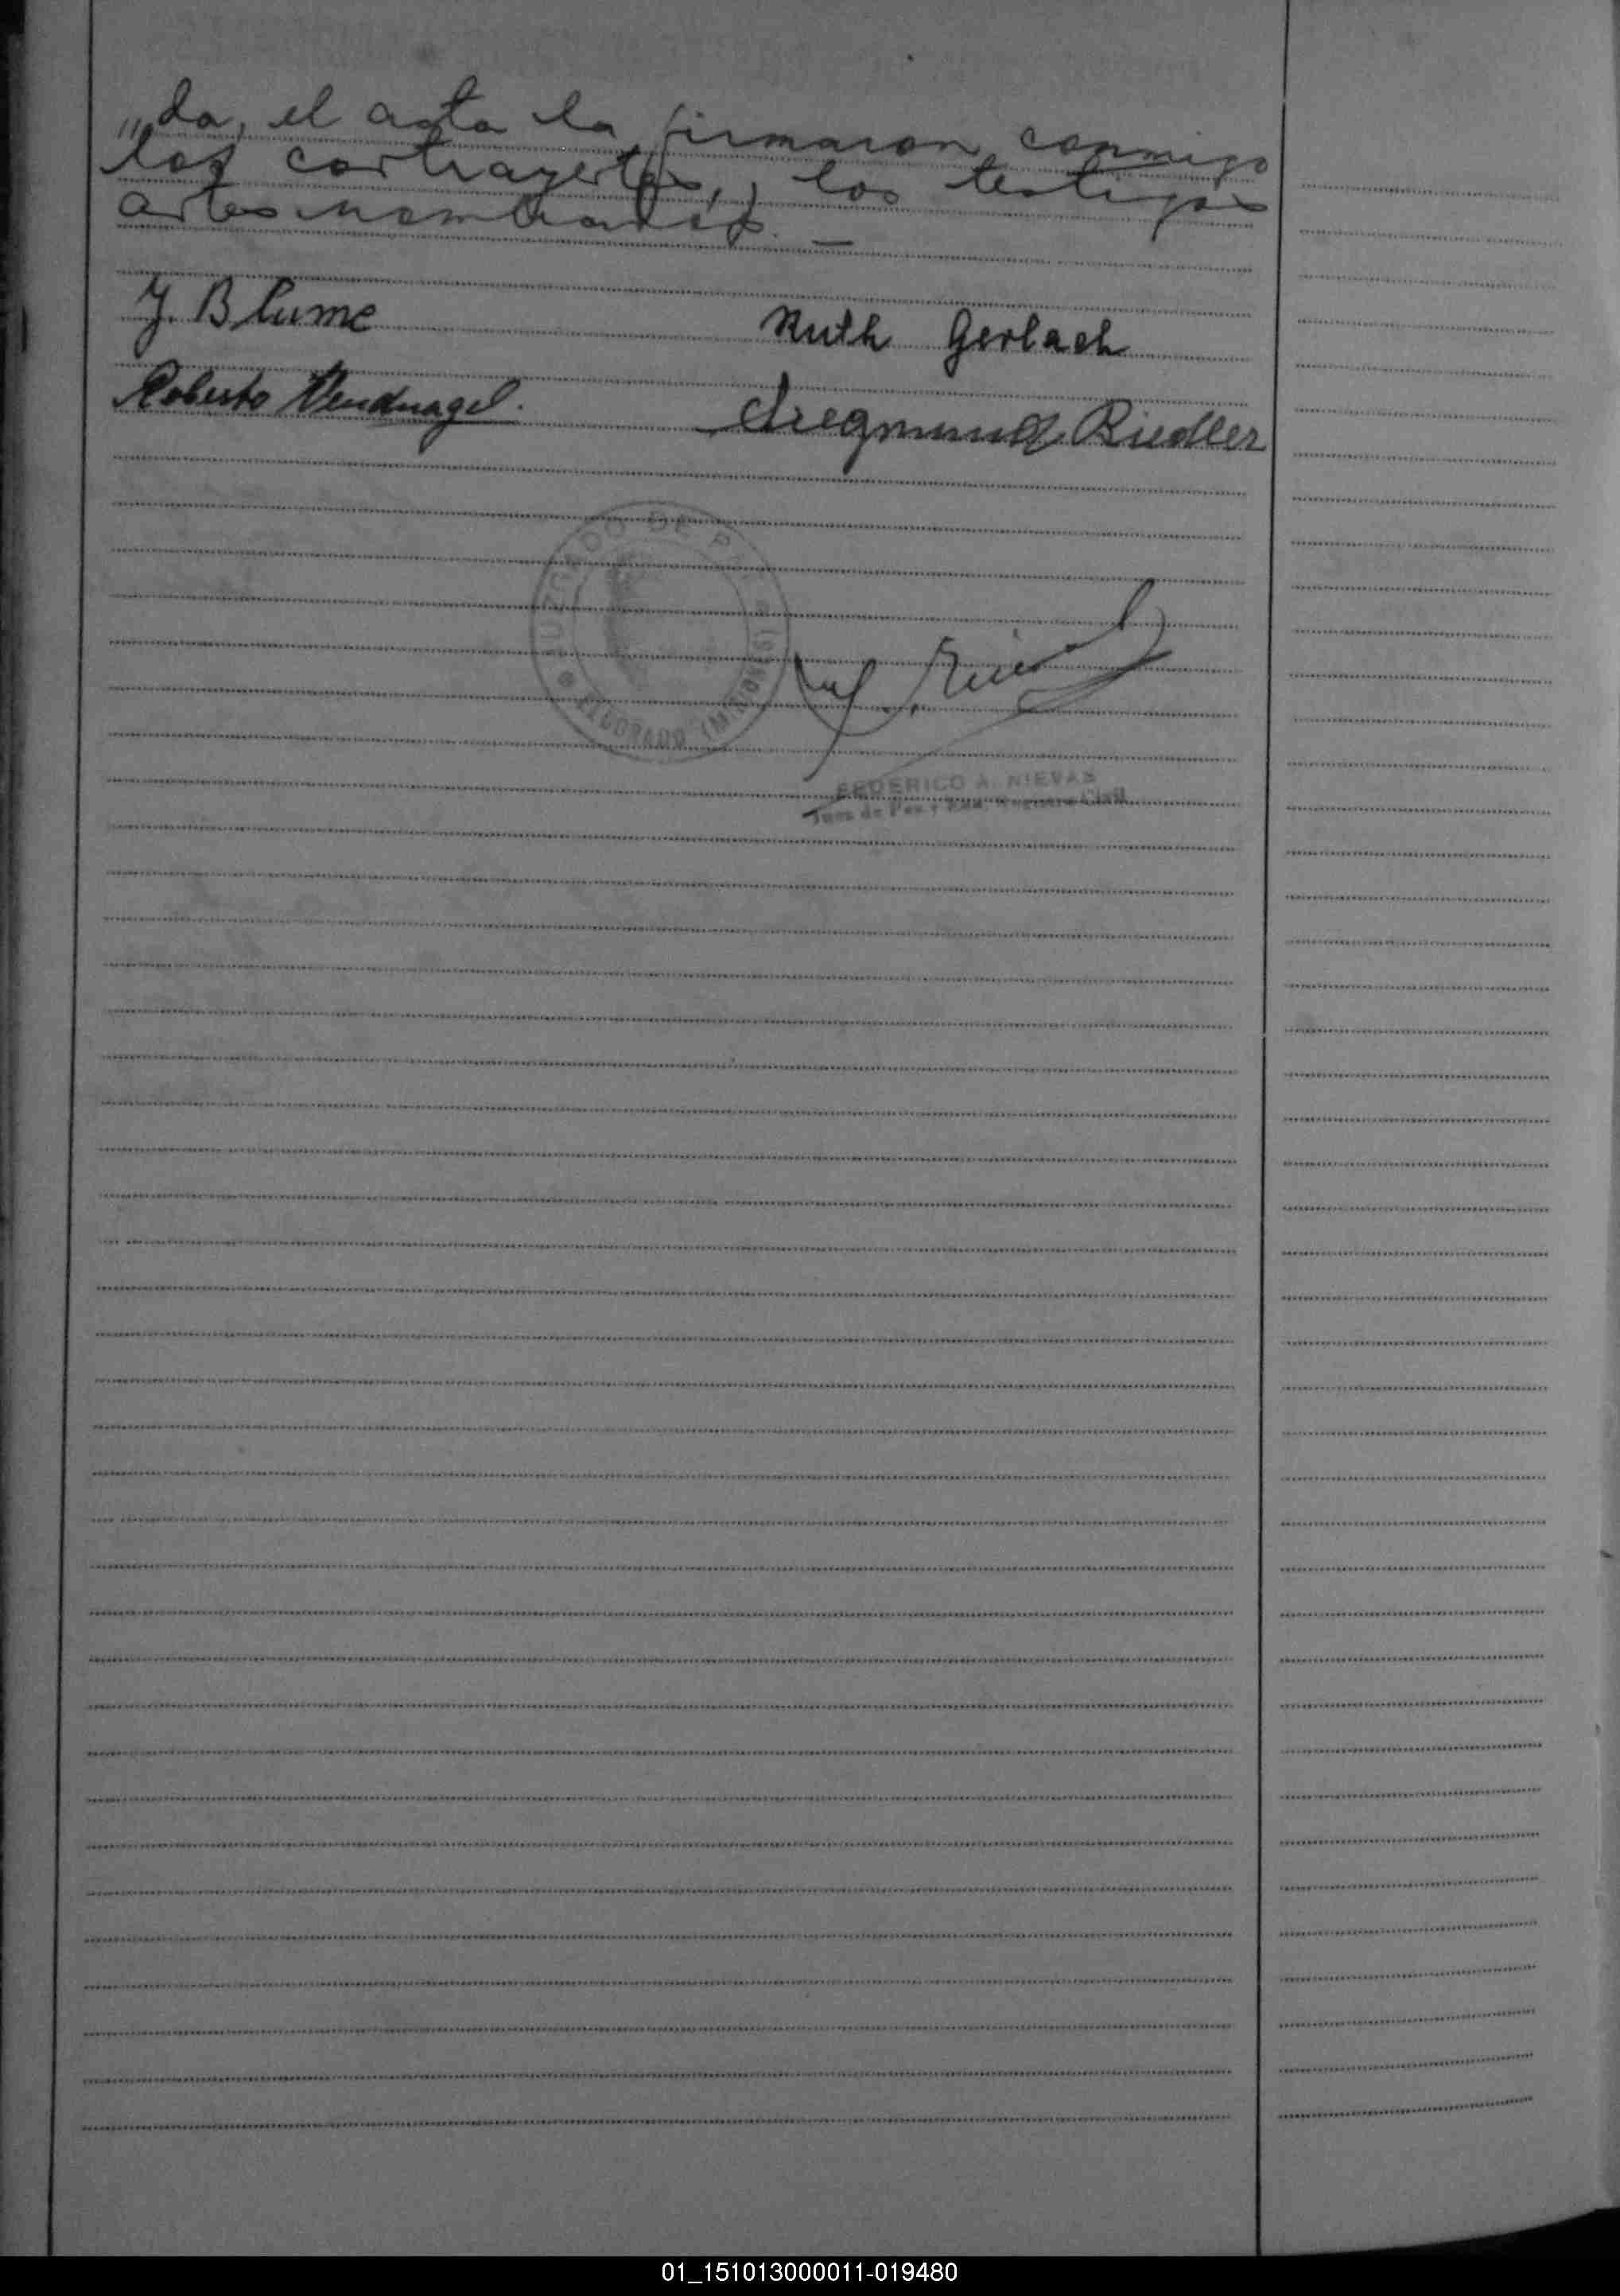 „da, el acta la firmaron conmigo
los contrayentes, y los testigos
antes nombrados. —
J. Blume
Ruth Gerlach
Roberto
Siegmund Riedler
JUZGADO DE PAZ
ELDORADO (MISIONES)
FEDERICO A. NIEVAS
Juez de Paz y Enc. Registro Civil
01_151013000011-019480